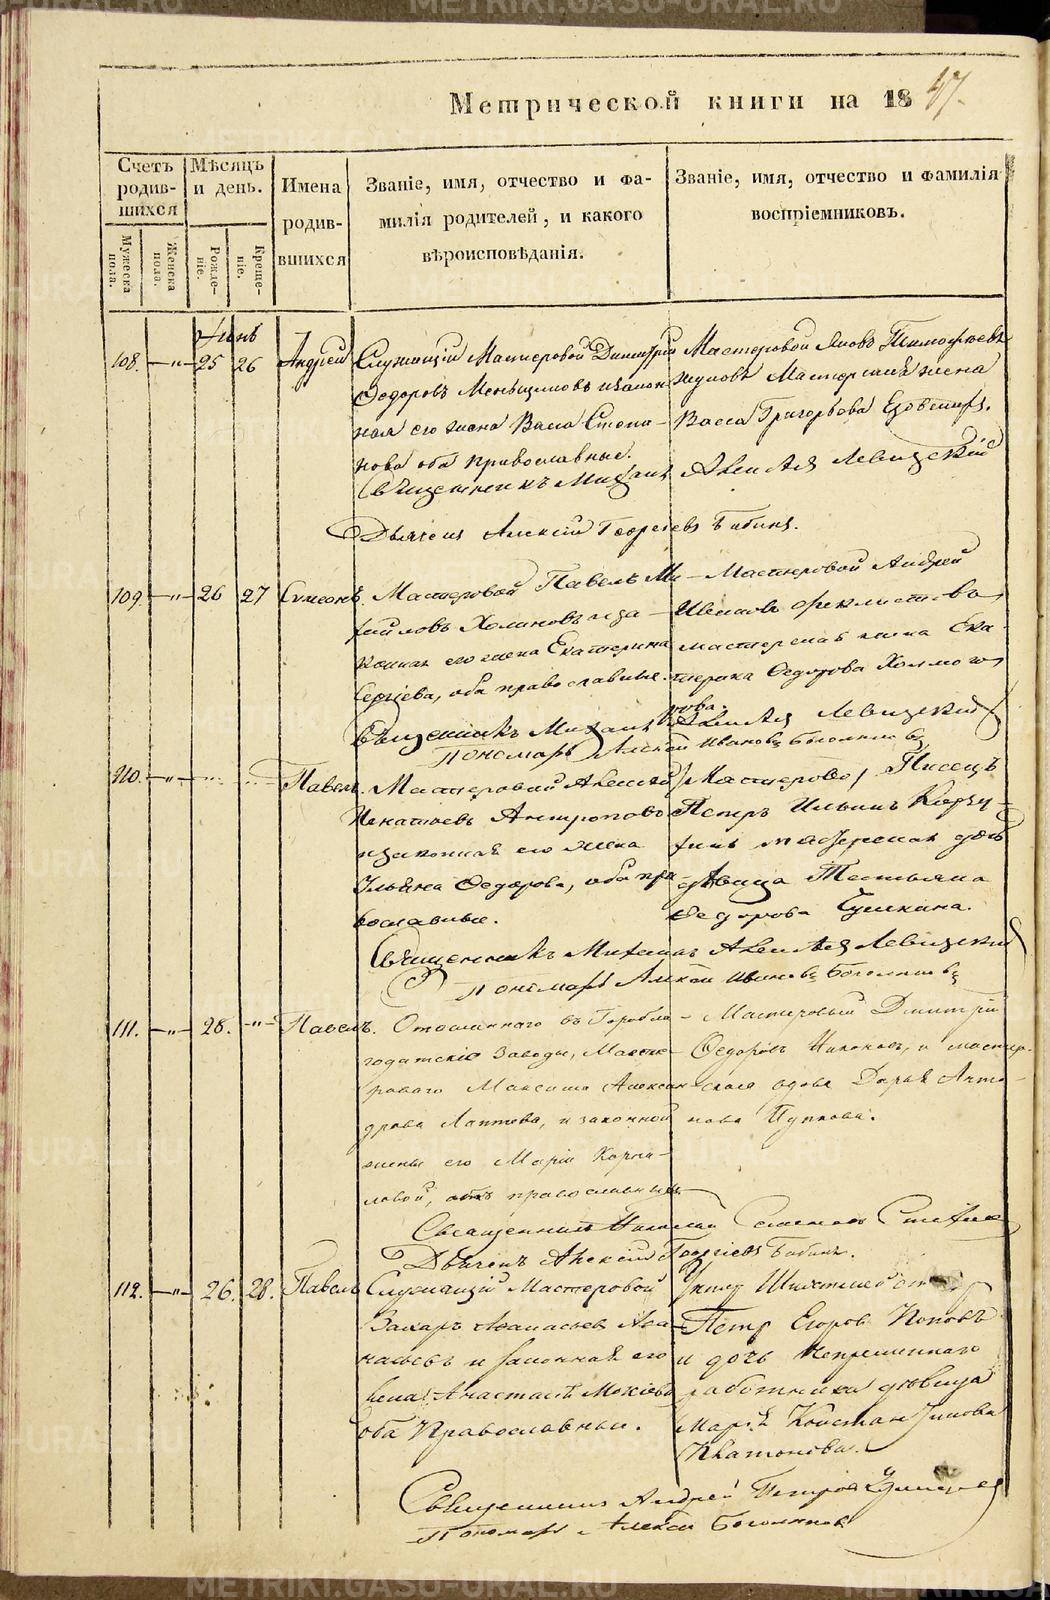 Метрической книги на 1847.
Счетъ родив-шихся
Мѣсяцъ и день.
Имена родив-шихся
Званіе, имя, отчество и фа-
милія родителей, и какого
вѣроисповѣданія.
Званіе, имя, отчество и фамилія
воспріемниковъ.
Мужеска пола.
Женска пола.
Рожде-ніе.
Креще-ніе.
Іюнь
108. —„— 25 26 Андрей
Служащій Мастеровой Димитрій
Ѳедоровъ Меньщиковъ и закон-
ная его жена Васса Степа-
нова оба православные.
Мастеровой Яковъ Тимофеевъ
Мастерская жена
Васса Григорьева
Священникъ Михаилъ Левицкій
Дьячекъ Алексій Георгіевъ Бабинъ.
109. —„— 26 27 Сѵмеонъ.
Мастеровой Павелъ Ми-
хайловъ и за-
конная его жена Екатерина
Сергіева, оба православные.
Мастеровой Андрей
Ивановъ
мастерская жена Ека-
терина Ѳедорова Холмого-
рова.
Священникъ Михаилъ Левицкій
Пономарь Алексій Ивановъ Боголюбовъ
110. —„— Павелъ.
Мастеровой Алексѣй
Игнатьевъ Антроповъ
и законная его жена
Ульяна Ѳедорова, оба пра
вославные.
Мастеровой Писецъ
Петръ Ильинъ
мастерская дочь
дѣвица Татьяна
Ѳедорова
Священникъ Михаилъ Левицкій
Пономарь Алексій Ивановъ Боголюбовъ
111. —„— 28. —„— Павелъ.
Отосланного въ Горобла-
годатскіе Заводы, Масте-
роваго Максима Алексан-
дрова Лаптева, и законной
жены его Маріи Корни-
ловой, оба православные
Мастеровый Дмитрій
Ѳедоровъ и мастер-
ская вдова Дарья Анто-
нова
Священникъ Николай
Дьячекъ Алексій Георгіевъ Бабинъ.
112. —„— 26. 28. Павелъ
Служащій Мастеровой
Захаръ Аѳанасьевъ Аѳа-
насьевъ и законная его
жена Анастасія Мокіева
оба Православные.
Унтеръ Шихтмейстеръ
Петръ Егоровъ Поповъ
и дочь Непременнаго
работника дѣвица
Марія Константинова
Платонова.
Священникъ Андрей Петровъ
Пономарь Алексій Боголюбовъ
METRIKI.GASU-URAL.RU